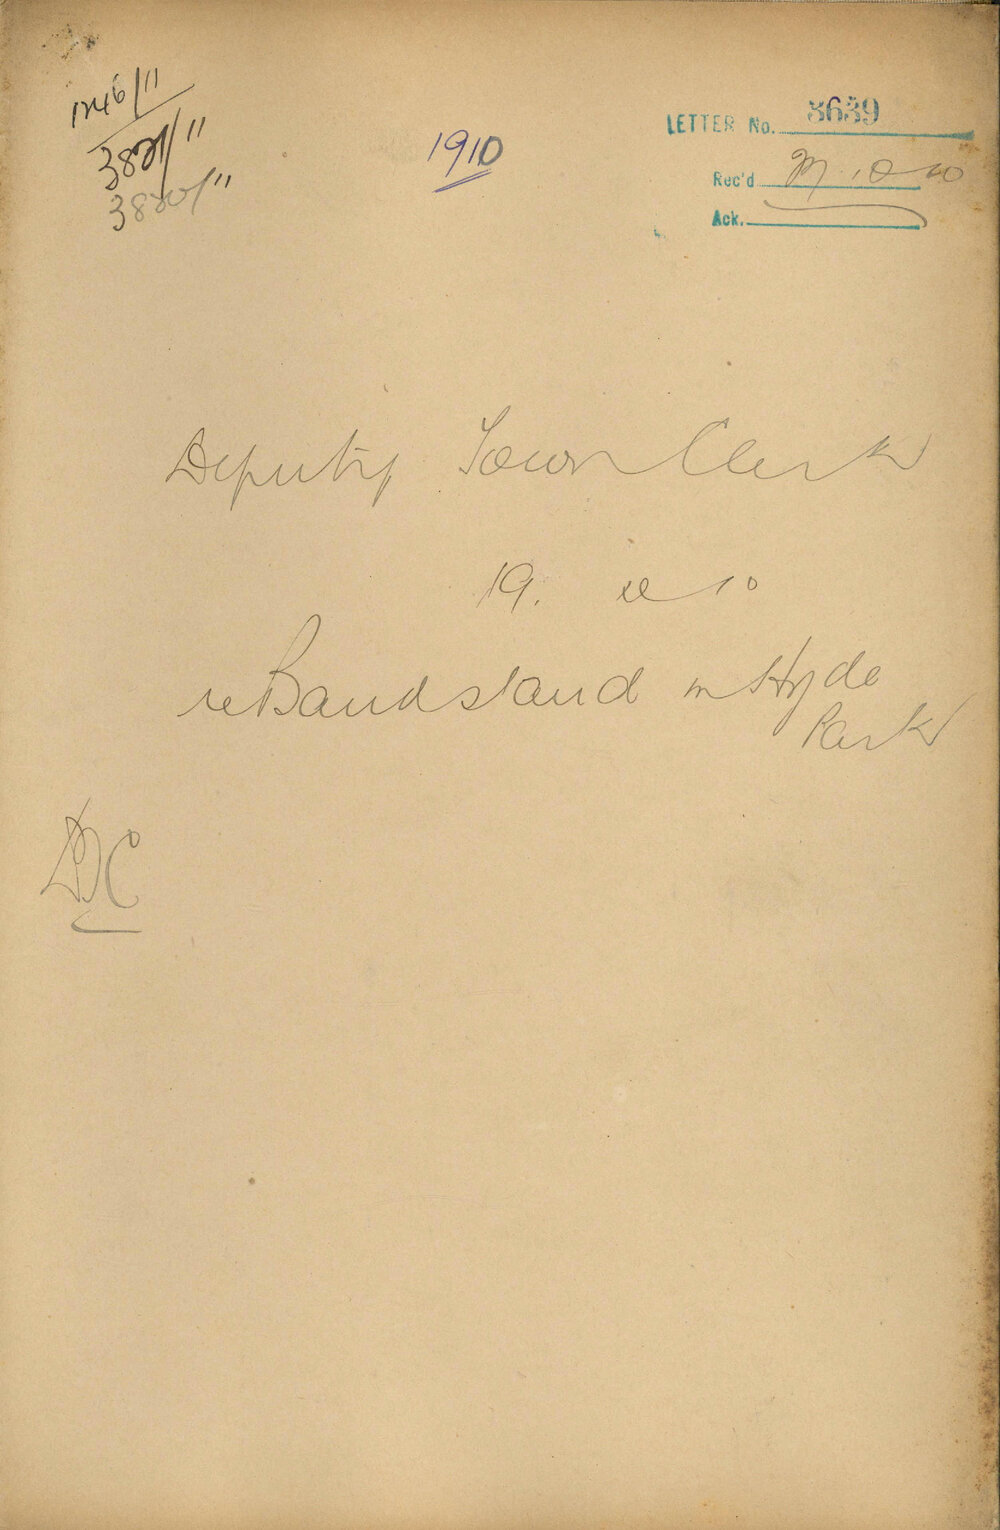 1246/11
3821/11
3820/11
1910
LETTER No. 3639
Rec'd 10
Ack.
Deputy Town Clerk
19. 10
re Bandstand in Hyde
Park